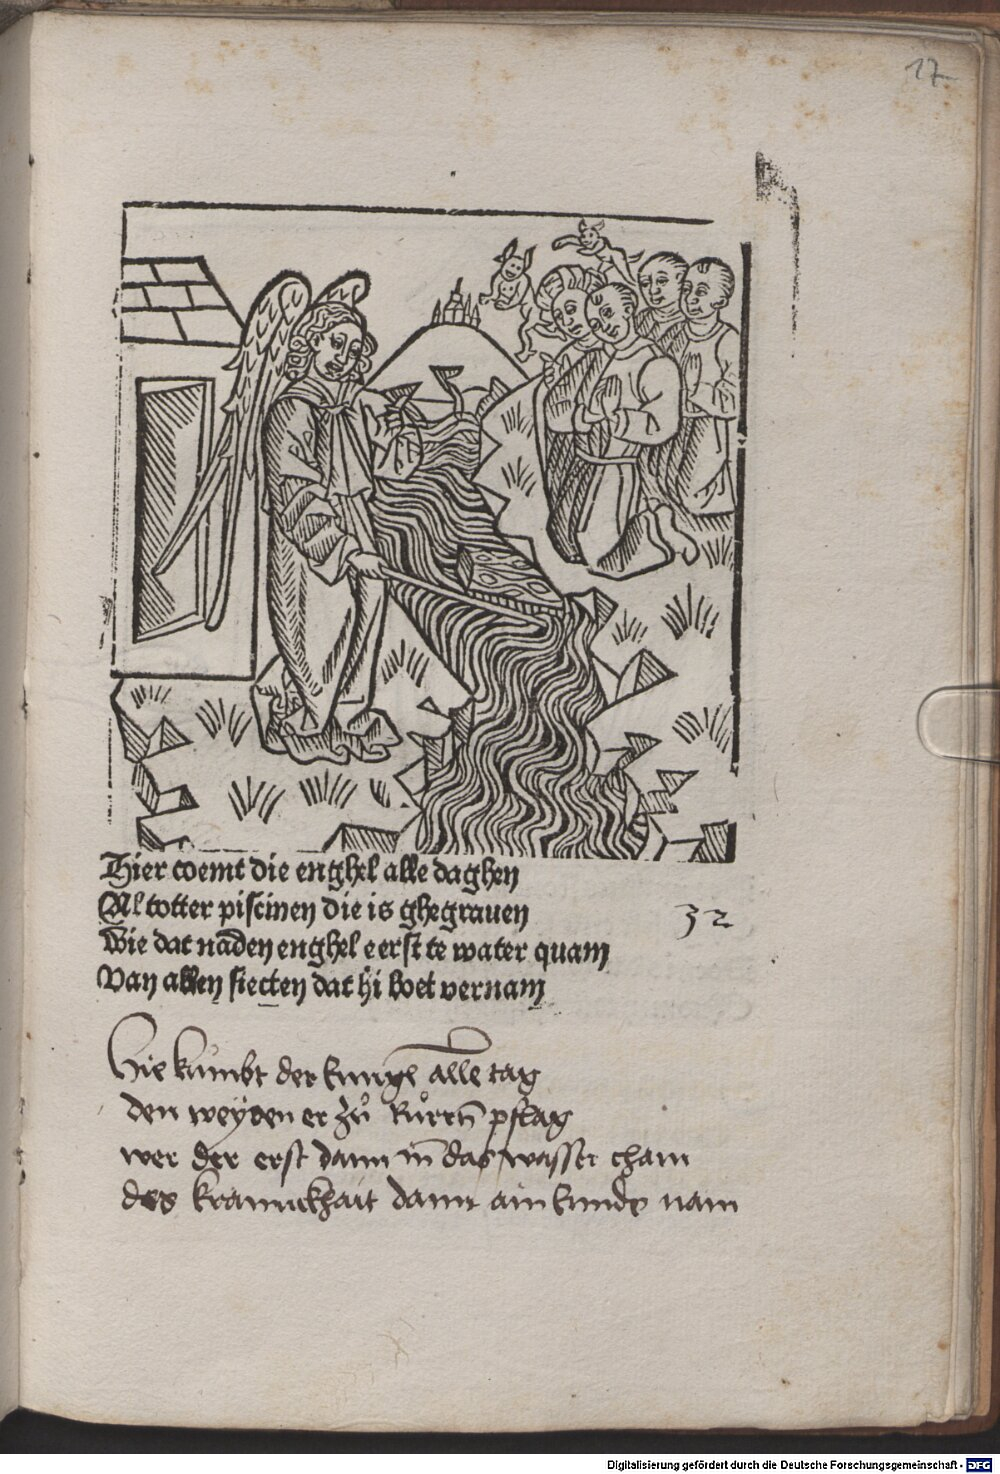 17
Hier coemt die enghel alle daghen
Al totter piscinen die is ghegrauen
32
Wie dat nāden enghel eerst te water quam
Van allen siecten dat hi boet vernam
Hie kumbt der Enngel alle tag
den weyden er zů Růrrn̄ pflag
wer der erst dann in das wasser cham
des kranncKhait dann ain Ennde nam
Digitalisierung gefördert durch die Deutsche Forschungsgemeinschaft - DFG